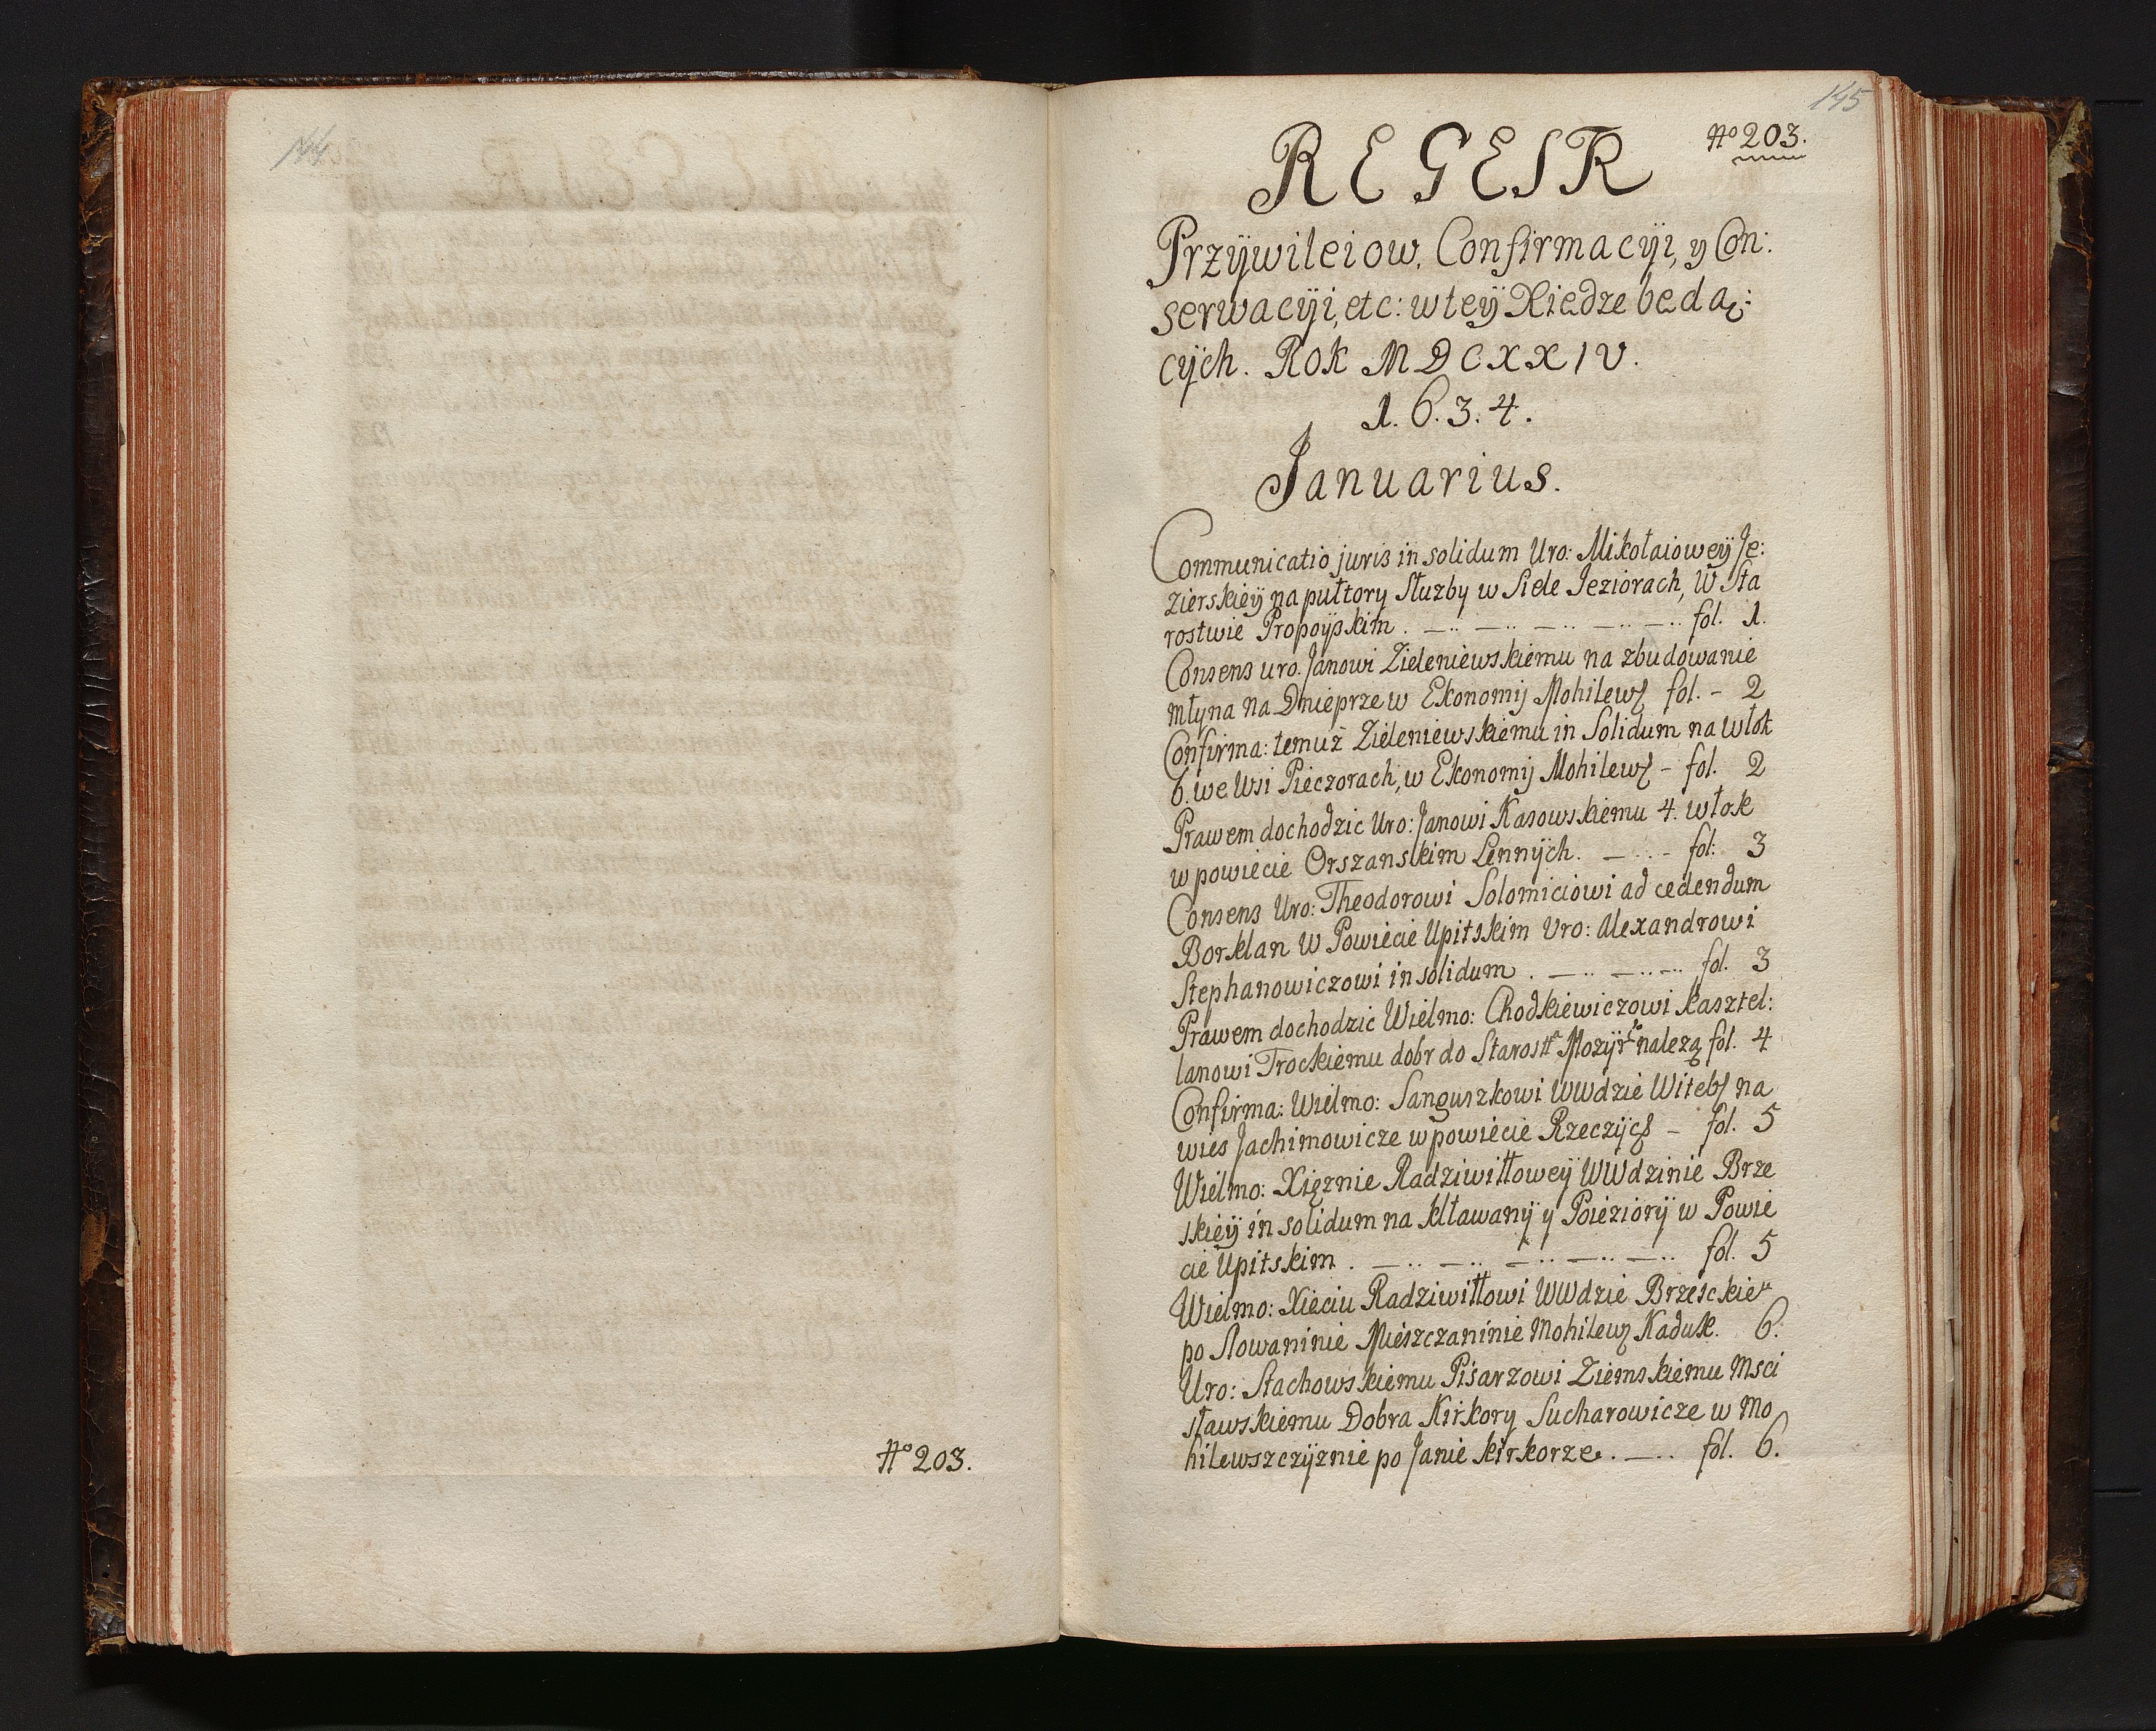 144
No 203.
145
No 203.
REGESTR
Przÿwileiow, Confirmacÿi, y Con:
serwacÿi, etc: w teÿ Xiedze będą:
cÿch. Rok MDCXXIV.
1.6.3.4.
Januarius.
Communicatio juris in solidum Uro: Mikołaioweÿ Je:
zierskieÿ na pułtory Służby w Siele Jeziorach, w Sta
rostwie Propoÿskim . —..—..—..—..—.. fol. 1.
Consens uro. Janowi Zieleniewskiemu na zbudowanie
młyna na Dnieprze w Ekonomij Mohilews fol. - 2
Confirma: temuż Zieleniewskiemu in Solidum na włok
6. we Wsi Pieczorach, w Ekonomij Mohilews - fol. 2
Prawem dochodzic Uro: Janowi Kasowskiemu 4. włok
w powiecie Orszanskim Lennÿch. —..- fol: 3
Consens Uro: Theodorowi Solomiciowi ad cedendum
Borklan w Powiecie Upitskim Uro: Alexandrowi
Stephanowiczowi in solidum . —.. —..—.. fol. 3
Prawem dochodzic Wielmo: Chodkiewiczowi kasztel:
lanowi Trockiemu dobr do Starostw Mozÿrgo należą fol. 4
Confirma: Wielmo: Sanguszkowi WWdzie Witebs na
wies Jachimowicze w powiecie Rzeczÿcs - fol. 5
Wielmo: Xiężnie Radziwiłłoweÿ WWdzinie Brze
skieÿ in solidum na kławanÿ y Poieziorÿ w Powie
cie Upitskim . —.. —.. —.. —.. —.. fol. 5
Wielmo: Xieciu Radziwiłłowi WWdzie Brzesckieu
po Slowaninie Mieszczaninie Mohilews Kaduk. 6.
Uro: Stachowskiemu Pisarzowi Ziemskiemu Msci
sławskiemu Dobra Kirkory Sucharowicze w Mo
hilewszczÿznie po Janie kirkorze. —.. fol. 6.